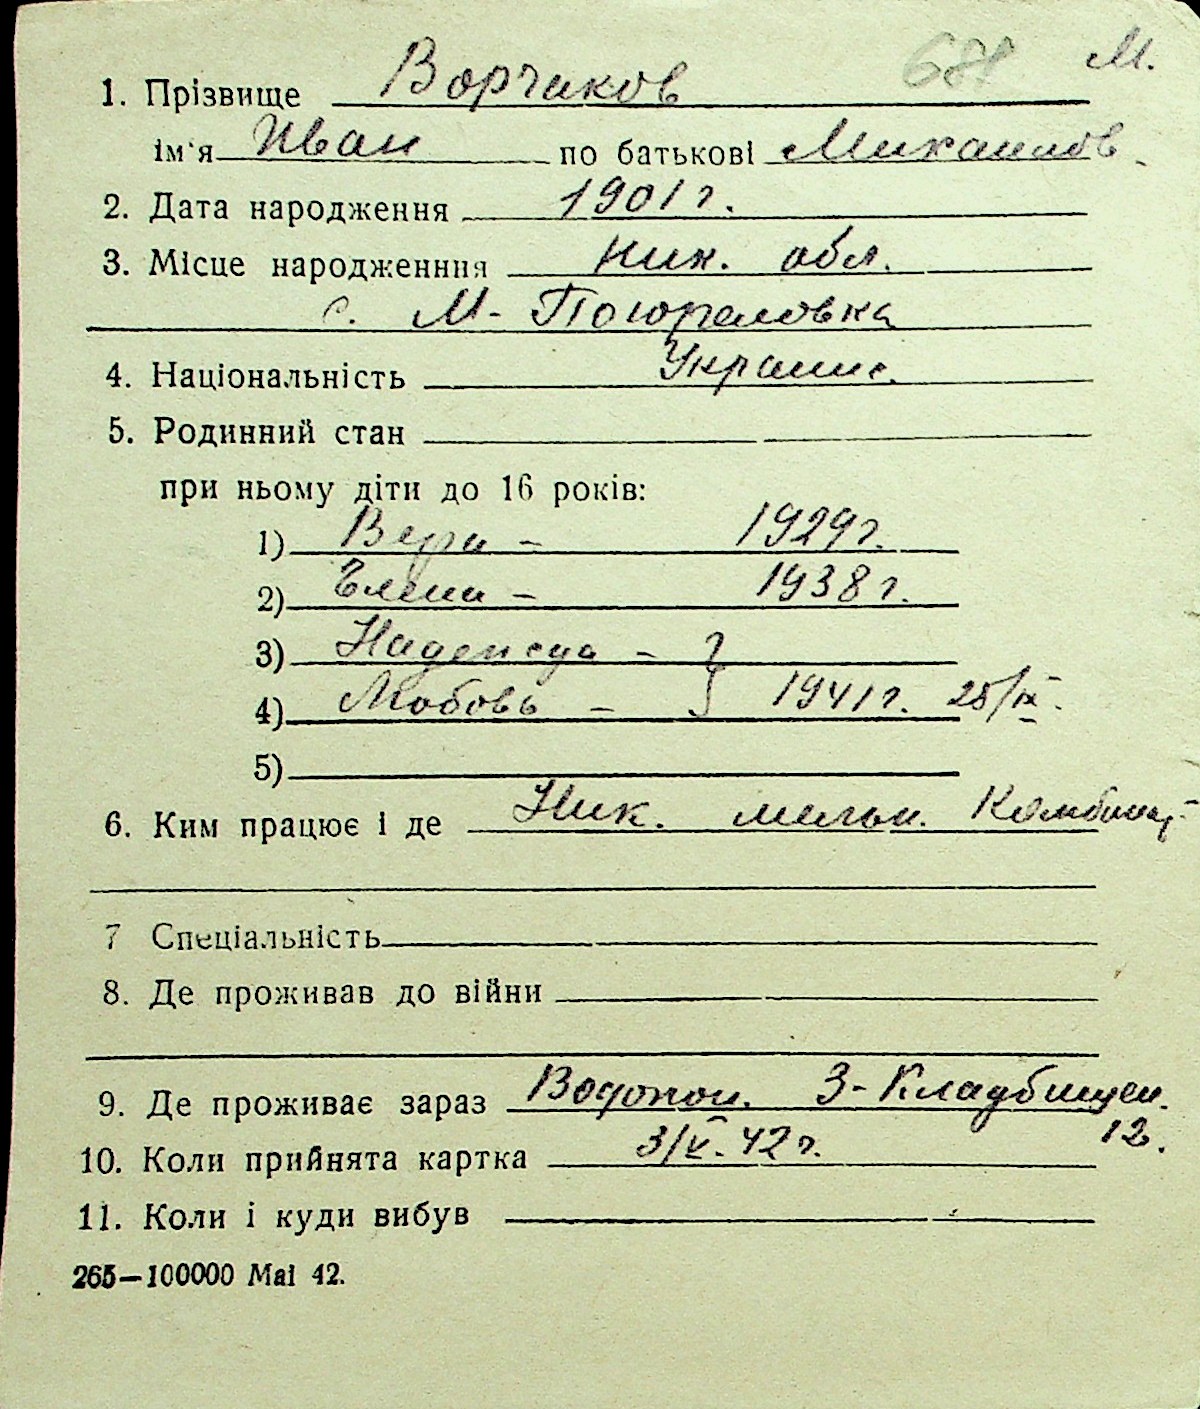 681 М.
1. Прізвище Ворчаков
ім'я Иван по батькові Михаилов.
2. Дата народження 1901 г.
3. Місце народженння Ник. обл.
с. М-Погореловка
4. Національність Украинс.
5. Родинний стан
при ньому діти до 16 років:
1) Вера - 1929 г.
2) Елена - 1938 г.
3) Надежда - }
4) Любовь - } 1941 г. 25/IX.
5)
6. Ким працює і де Ник. мельн. Комбинат
7 Спеціальність
8. Де проживав до війни
9. Де проживає зараз Водопой. 3-Кладбищен.
12.
10. Коли прийнята картка 3/V. 42 г.
11. Коли і куди вибув
265—100000 Mai 42.